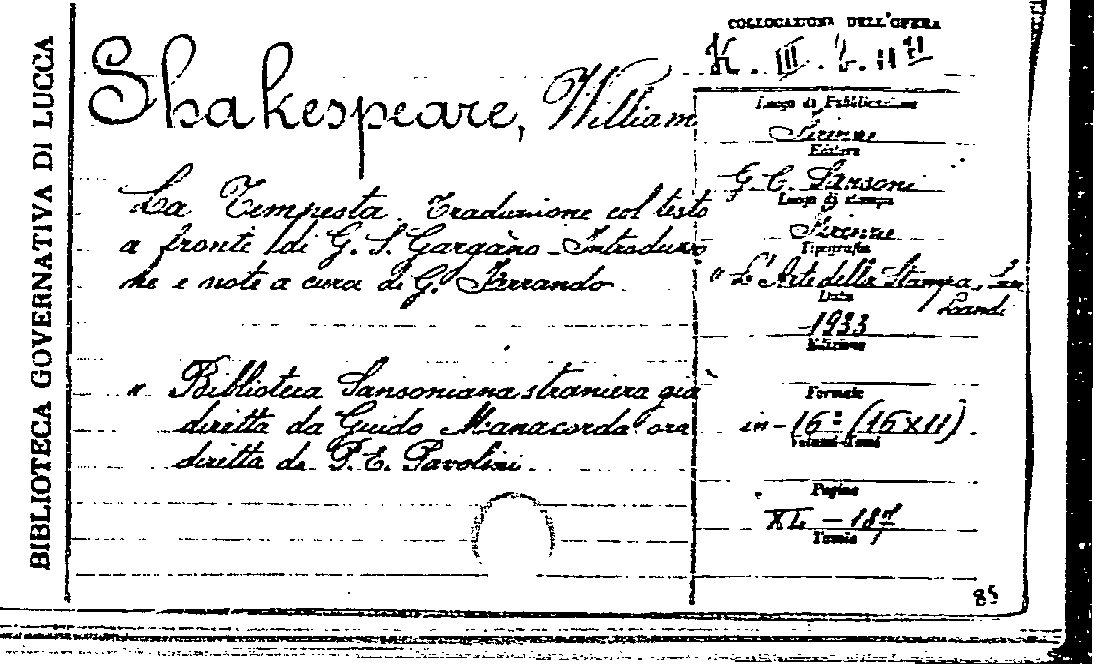 BIBLIOTECA GOVERNATIVA DI LUCCA
Shakespeare, William
La Tempesta. Traduzione col testo
a fronte di G. S. Gargàno - Introduzio
ne e note a cura di G. Ferrando
« Biblioteca Sansoniana straniera già
diretta da Guido Manacorda ora
diretta da P. E. Pavolini.
COLLOCAZIONE DELL'OPERA
K. III. 
Luogo di Pubblicazione
Firenze
Editore
G. C. Sansoni
Luogo di stampa
Firenze
Tipografia
« L'Arte della Stampa,
Landi
Data
1933
Edizione
Formato
in-16° (16x11)
Pagine
XL - 187
Tavole
85